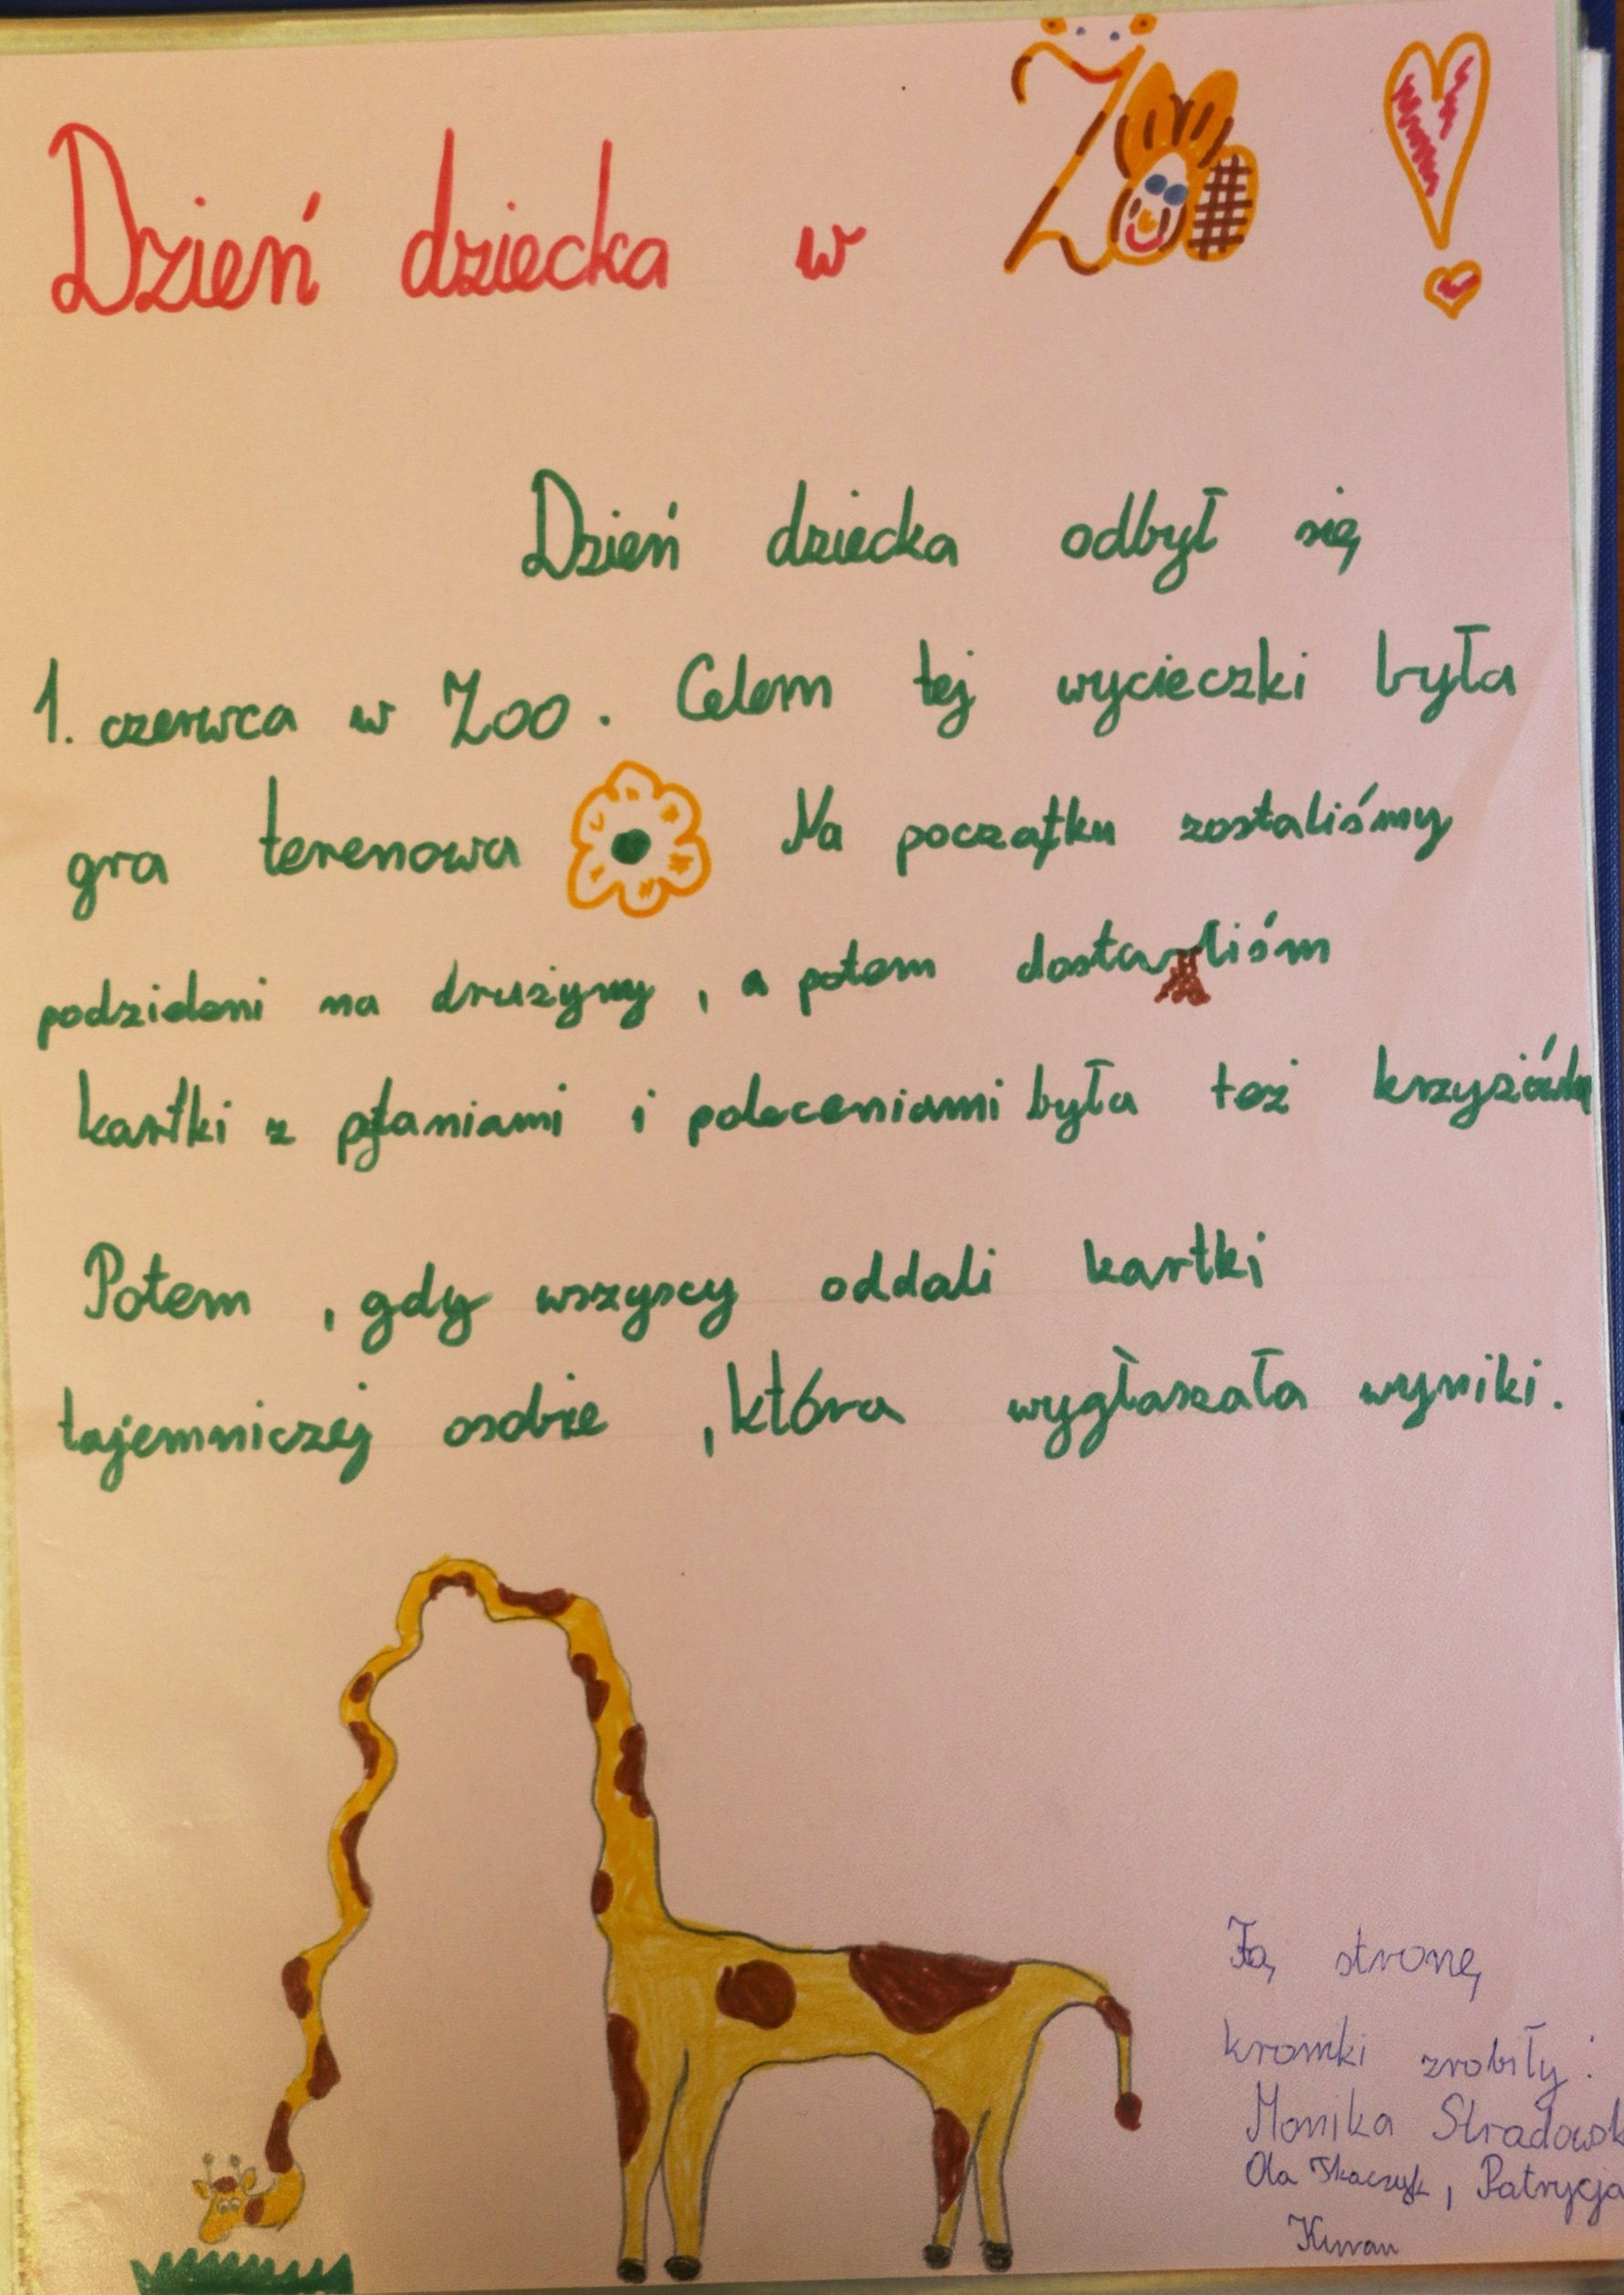 Dzień dziecka w Zoo!
Dzień dziecka odbył się
1. czerwca w Zoo. Celem tej wycieczki była
gra terenowa Na początku zostaliśmy
podzieleni na drużyny, a potem
kartki z pytaniami i poleceniami była też krzyżówka
Potem, gdy wszyscy oddali kartki
tajemniczej osobie, która wygłaszała wyniki.
Tą stronę
kroniki zrobiły:
Monika Stradowsk
Ola Tkaczyk, Patrycja